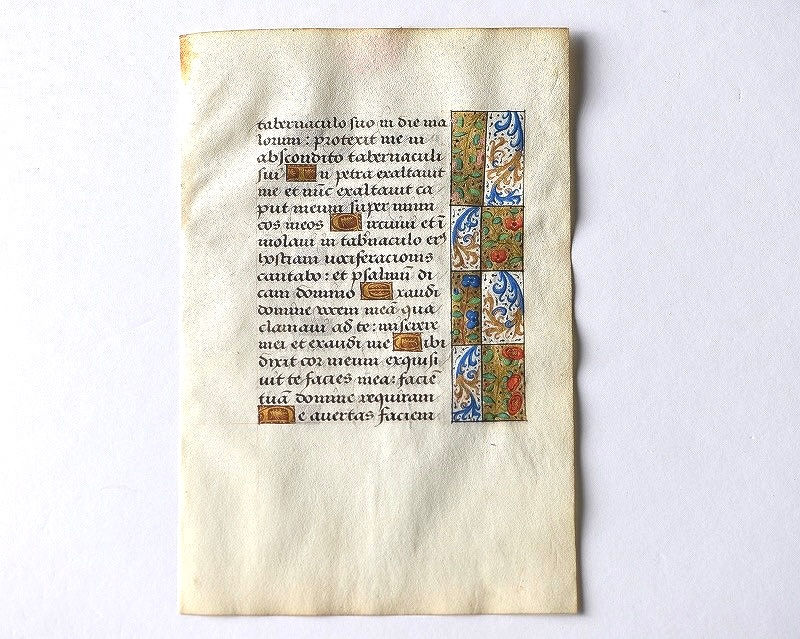 tabernaculo suo in die ma
lorum : protexit me in
abscondito tabernaculi
sui In petra exaltauit
me et nūc exaltauit ca
put meum super inimi
cos meos Circuiui et ī
molaui in tab'naculo eiꝰ
hostiam vociferacionis
cantabo : et psalmū di
cam domino Exaudi
domine vocem meā qua
clamaui ad te : miserere
mei et exaudi me Tibi
dixit cor meum exquisi
uit te facies mea : faciē
tuā domine requiram
Ne auertas faciem